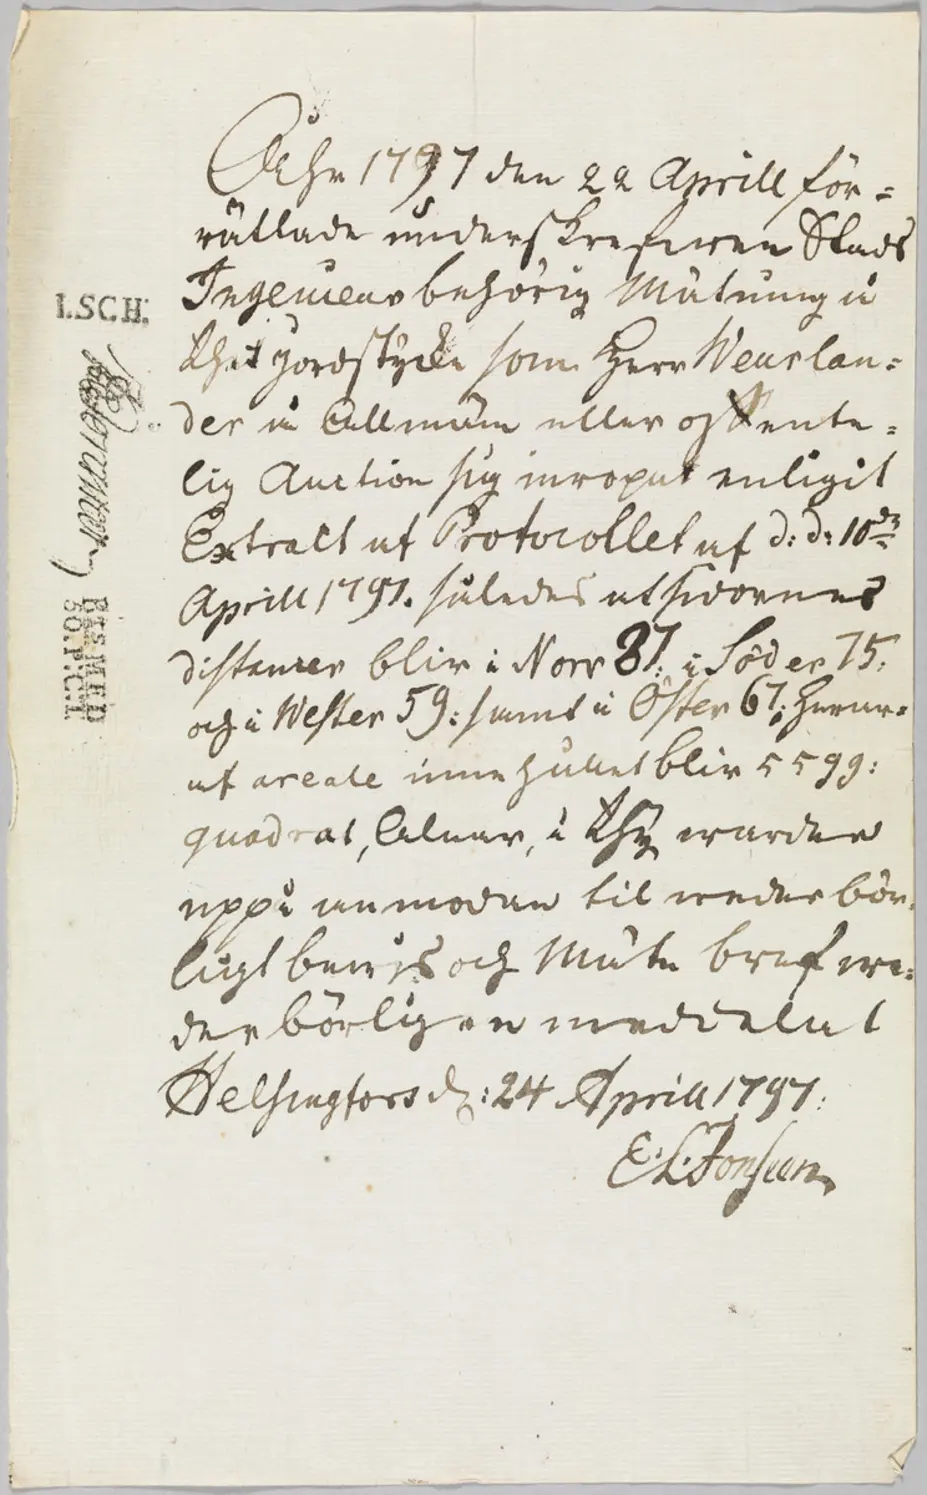 Åhr 1797 den 22 Aprill för=
rättade underskrefwen Stads
Ingenieur behörig Mätning å
thet jordstycke som Herr Weurlan=
der å Allmän eller offente=
lig Auction sig inropat enligit
Extract af Protocollet af d: d: 10de
Aprill 1797. således at sidornes
distancer blir i Norr 87: i Söder 75:
och i Wester 59: samt i Öster 67: hwar=
af areale innehållet blir 5599:
quadrat, Alnar, i thy warder
uppå anmodan til wederbör=
ligt bewis och Mäte bref we=
derbörligen meddelat
Helsingfors d: 24 Aprill 1797:
E. L. Jonsson
I.SCH.
BTS.MED